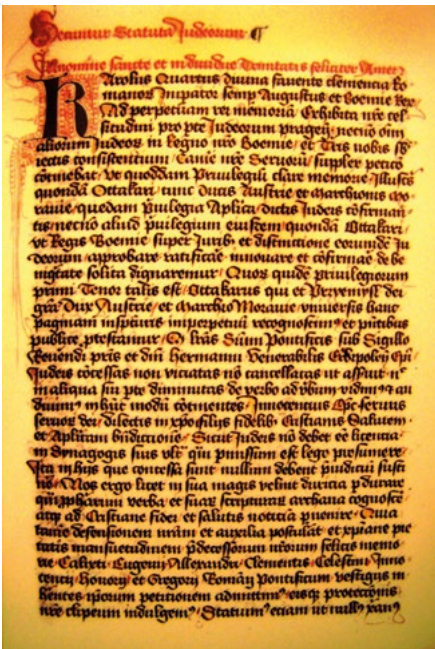 Secuntur Statuta Judeorum ¶
In nomine sancte et individue Trinitatis feliciter Amen
Karolus Quartus divina favente clemencia Ro
manoꝝ Impator semp Augustus et Boemie Rex
Ad perpetuam rei memoriā Exhibita nr̄e cel
situdini pro pte Judeorum pragen̄ necnō oīm
aliorum Judeoꝝ in Regno nr̄o Boemie et Tris nobis sb
iectis consistentium Cam̄e nr̄e Servorū supplex peticō
cōtinebat ut quoddam Privilegiū clare memorie Illustꝭ
quondā Ottakari tunc ducis Austrie et Marchionis mo
ravie quedam pͥvilegia Ap̄lica dictis Judeis cōfirman
tis necnō aliud pͥvilegium eiusdem quondā Ottakari
ut Regis Boemie super Jurib et distinctione eorundē Ju
deorum approbare ratificare innovare et cōfirmare de be
nignitate solita dignaremur Quorꝝ quidē privilegiorum
primi Tenor talis est Ottakarus qui et Przemisl dei
grā Dux Austrie et Marchio Moravie universis hanc
paginam inspecturis inperpetuū recognoscimꝰ et pn̄tibus
publice ptestamur Q lrās Sūmi Pontificis sub Sigillo
Reverendi pris et dn̄i Hermanni venerabilis Ep̄i
Judeis cōcessas non viciatas nō cancellatas ut assuit nec
in aliqua sui pte diminutas de verbo ad v̄bum vidimꝰ et au
divimꝰ in hūc modū cōtinentes Innocentius Ep̄c servus
servoꝝ dei dilectis in xp̄o filijs fidelibꝫ Cristianis Salutem
et Ap̄licam bn̄dictionē Sicut Judeis nō debet eē licentia
in Synagogis suis ultͣ qͣm pmissum est lege presumere
Ita in hijs que concessa sunt nullum debent pͥiudiciū susti
nē Nos ergo licet in sua magis velint duricia pdurare
qͣm pphetarum verba et suarꝝ scripturarꝝ archana cognoscē
atqꝫ ad Cristiane fidei et salutis noticiā pvenire Quia
tamē defensionem nrām et auxilia postulāt et xp̄iane pie
tatis mansuetudinem pdecessorum nr̄orum felicis memo
rie Calixti Eugenij Allexandri Clementis Celestini Inno
centij Honorij et Gregorij Romāꝝ Pontificum vestigijs in
herentes ip̄orum petitionem admittimꝰ eisqꝫ protectionis
nr̄e clipeum indulgemꝰ Statuimꝰ etiam ut nullꝰ xpianꝰ